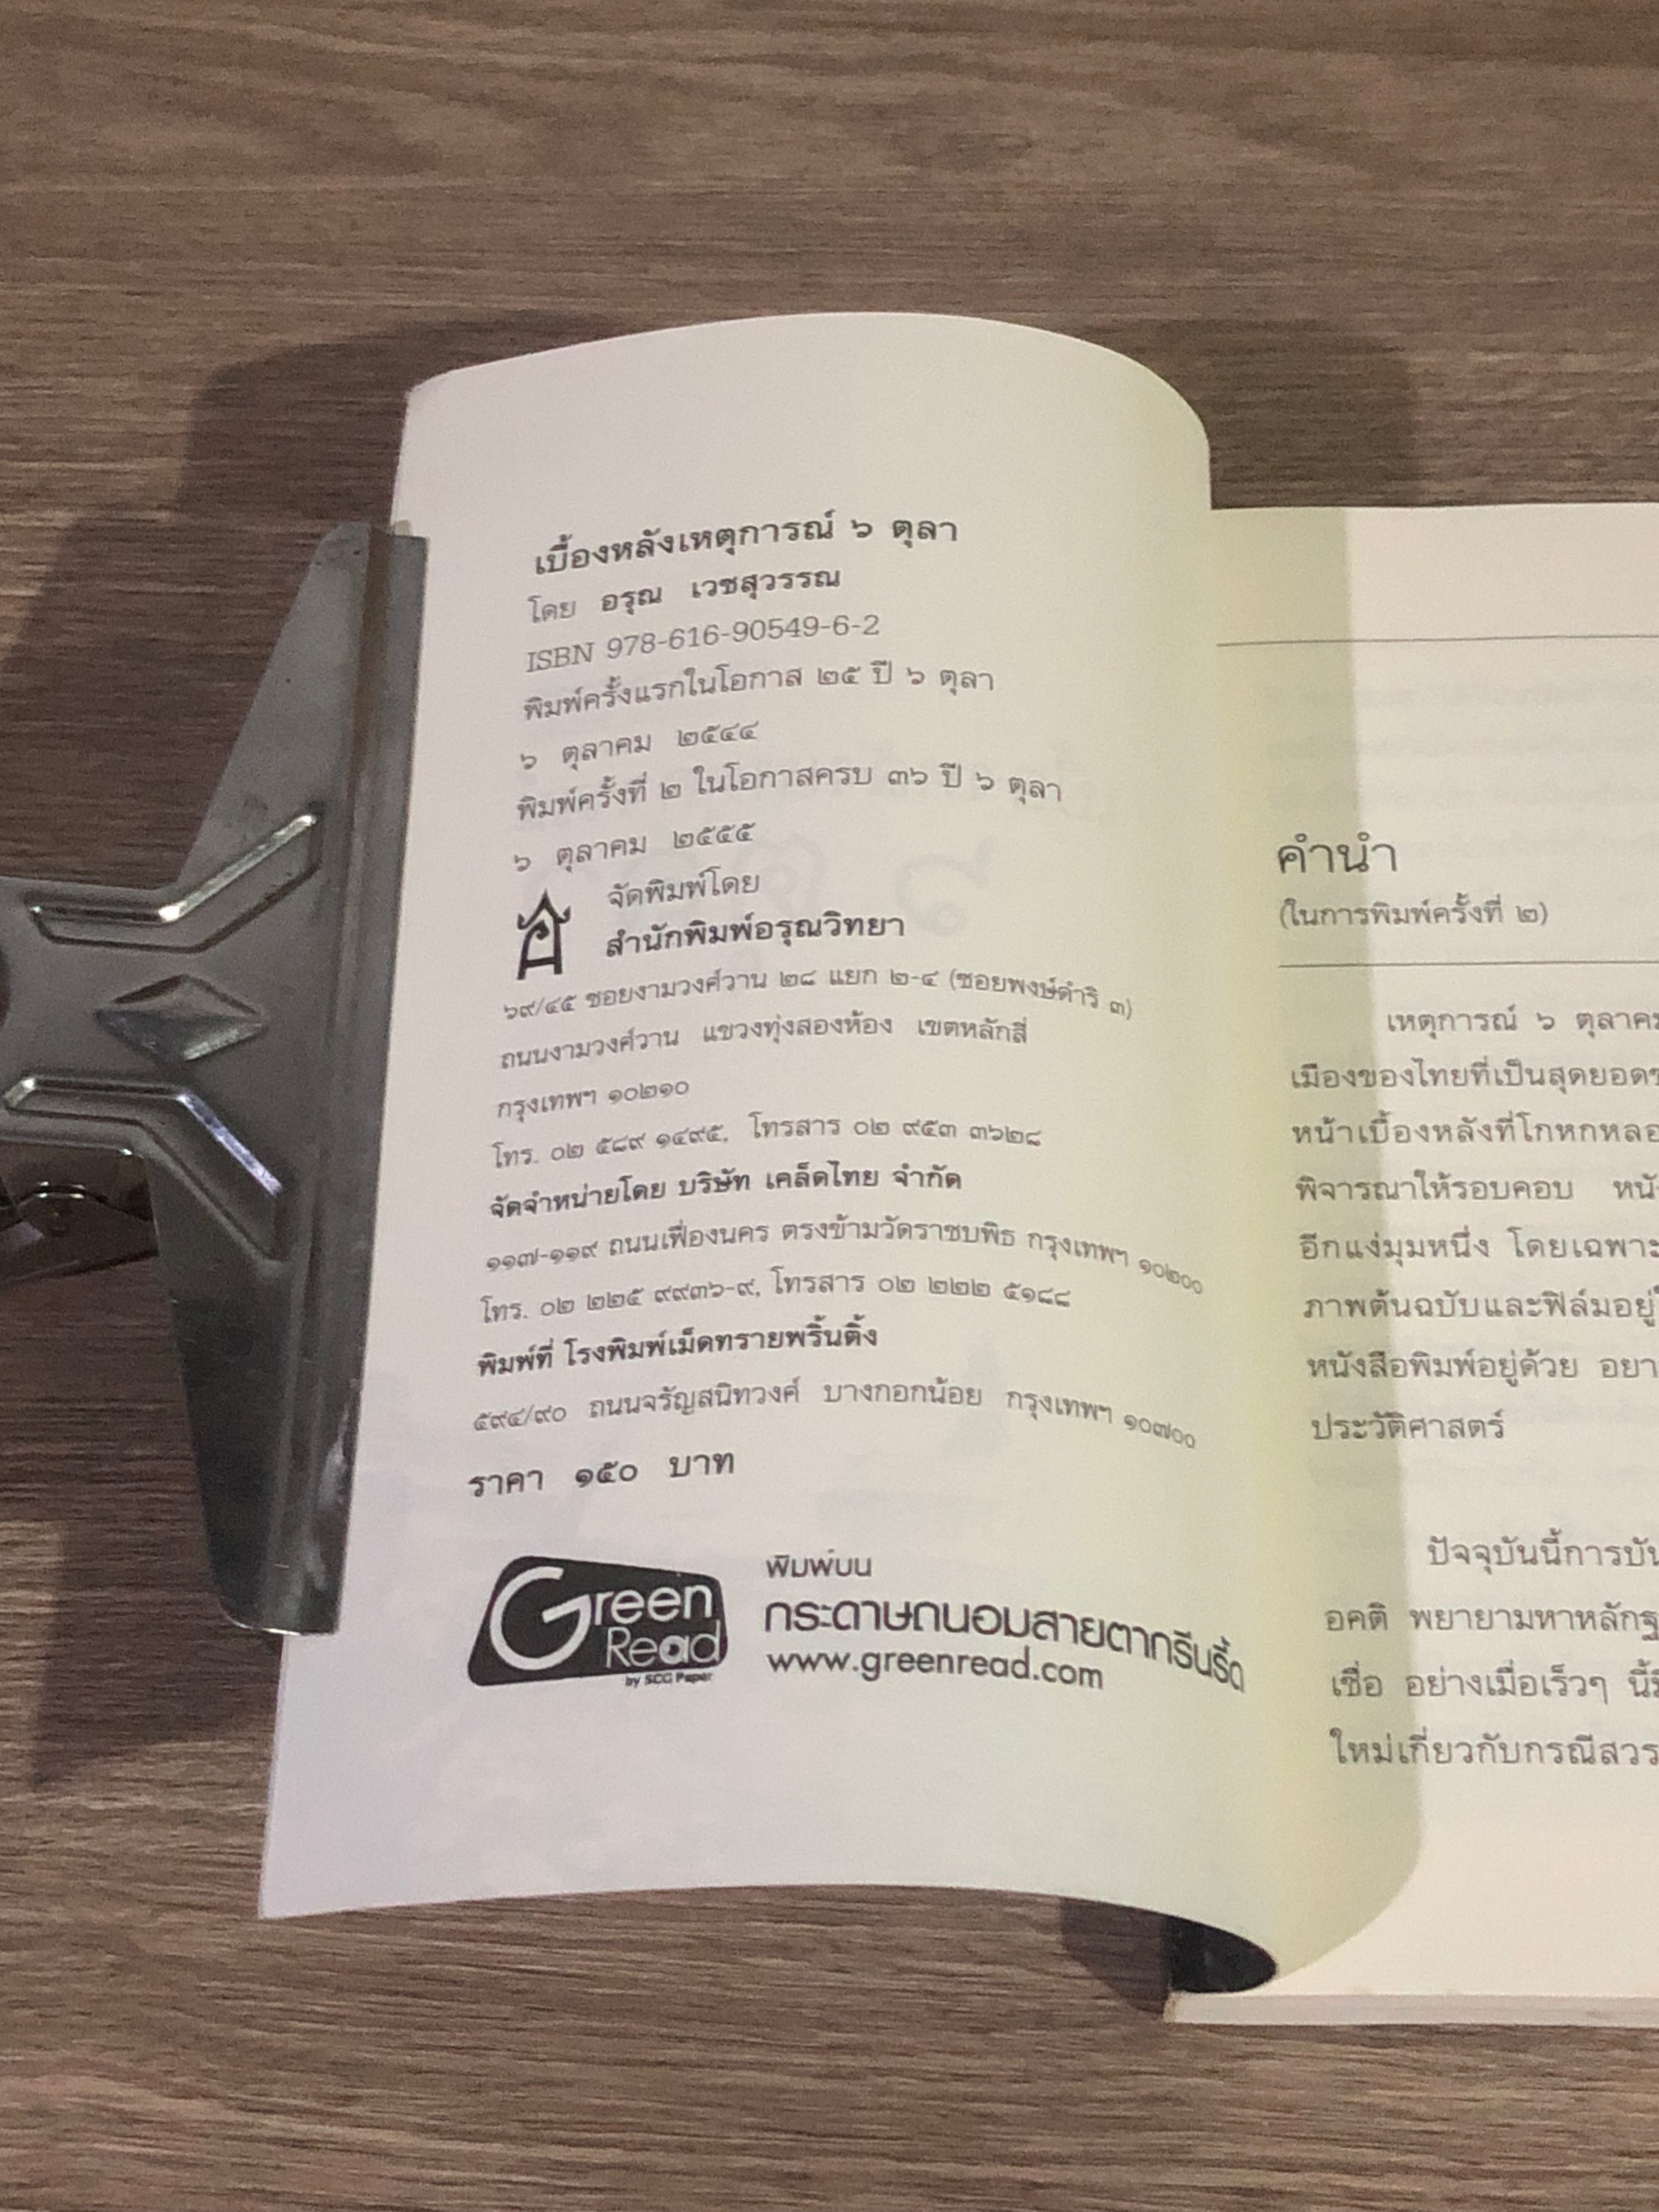 เบื้องหลังเหตุการณ์ ๖ ตุลา
โดย อรุณ เวชสุวรรณ
ISBN 978-616-90549-6-2
พิมพ์ครั้งแรกในโอกาส ๒๕ ปี ๖ ตุลา
๖ ตุลาคม ๒๕๔๔
พิมพ์ครั้งที่ ๒ ในโอกาสครบ ๓๖ ปี ๖ ตุลา
๖ ตุลาคม ๒๕๕๕
จัดพิมพ์โดย
สำนักพิมพ์อรุณวิทยา
๖๙/๔๕ ซอยงามวงศ์วาน ๒๘ แยก ๒-๔ (ซอยพงษ์ดำริ ๓)
ถนนงามวงศ์วาน แขวงทุ่งสองห้อง เขตหลักสี่
กรุงเทพฯ ๑๐๒๑๐
โทร. ๐๒ ๕๘๙ ๑๔๙๕, โทรสาร ๐๒ ๙๕๓ ๓๖๒๘
จัดจำหน่ายโดย บริษัท เคล็ดไทย จำกัด
๑๑๗-๑๑๙ ถนนเฟื่องนคร ตรงข้ามวัดราชบพิธ กรุงเทพฯ ๑๐๒๐๐
โทร. ๐๒ ๒๒๕ ๙๙๓๖-๙, โทรสาร ๐๒ ๒๒๒ ๕๑๘๘
พิมพ์ที่ โรงพิมพ์เม็ดทรายพริ้นติ้ง
๕๙๔/๙๐ ถนนจรัญสนิทวงศ์ บางกอกน้อย กรุงเทพฯ ๑๐๗๐๐
ราคา ๑๕๐ บาท
Green Read
by SCG Paper
พิมพ์บน
กระดาษถนอมสายตากรีนรี้ด
www.greenread.com
คำนำ
(ในการพิมพ์ครั้งที่ ๒)
เหตุการณ์ ๖ ตุลาคม
เมืองของไทยที่เป็นสุดยอด
หน้าเบื้องหลังที่โกหกหลอ
พิจารณาให้รอบคอบ
อีกแง่มุมหนึ่ง โดยเฉพาะ
ภาพต้นฉบับและฟิล์มอยู่
หนังสือพิมพ์อยู่ด้วย อยา
ประวัติศาสตร์
ปัจจุบันนี้การบัน
อคติ พยายามหาหลักฐ
เชื่อ อย่างเมื่อเร็วๆ นี้
ใหม่เกี่ยวกับกรณีสวร